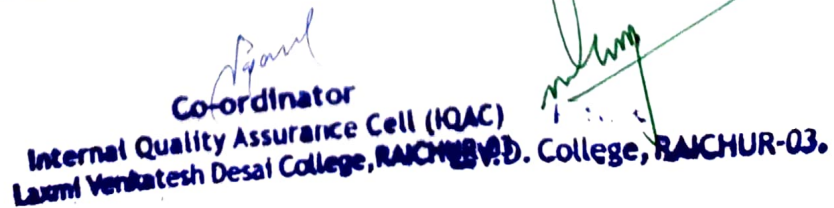 Co-ordinator
Internal Quality Assurance Cell (IQAC)
Laxmi Venkatesh Desai College, RAICHUR-03
L.V.D. College, RAICHUR-03.